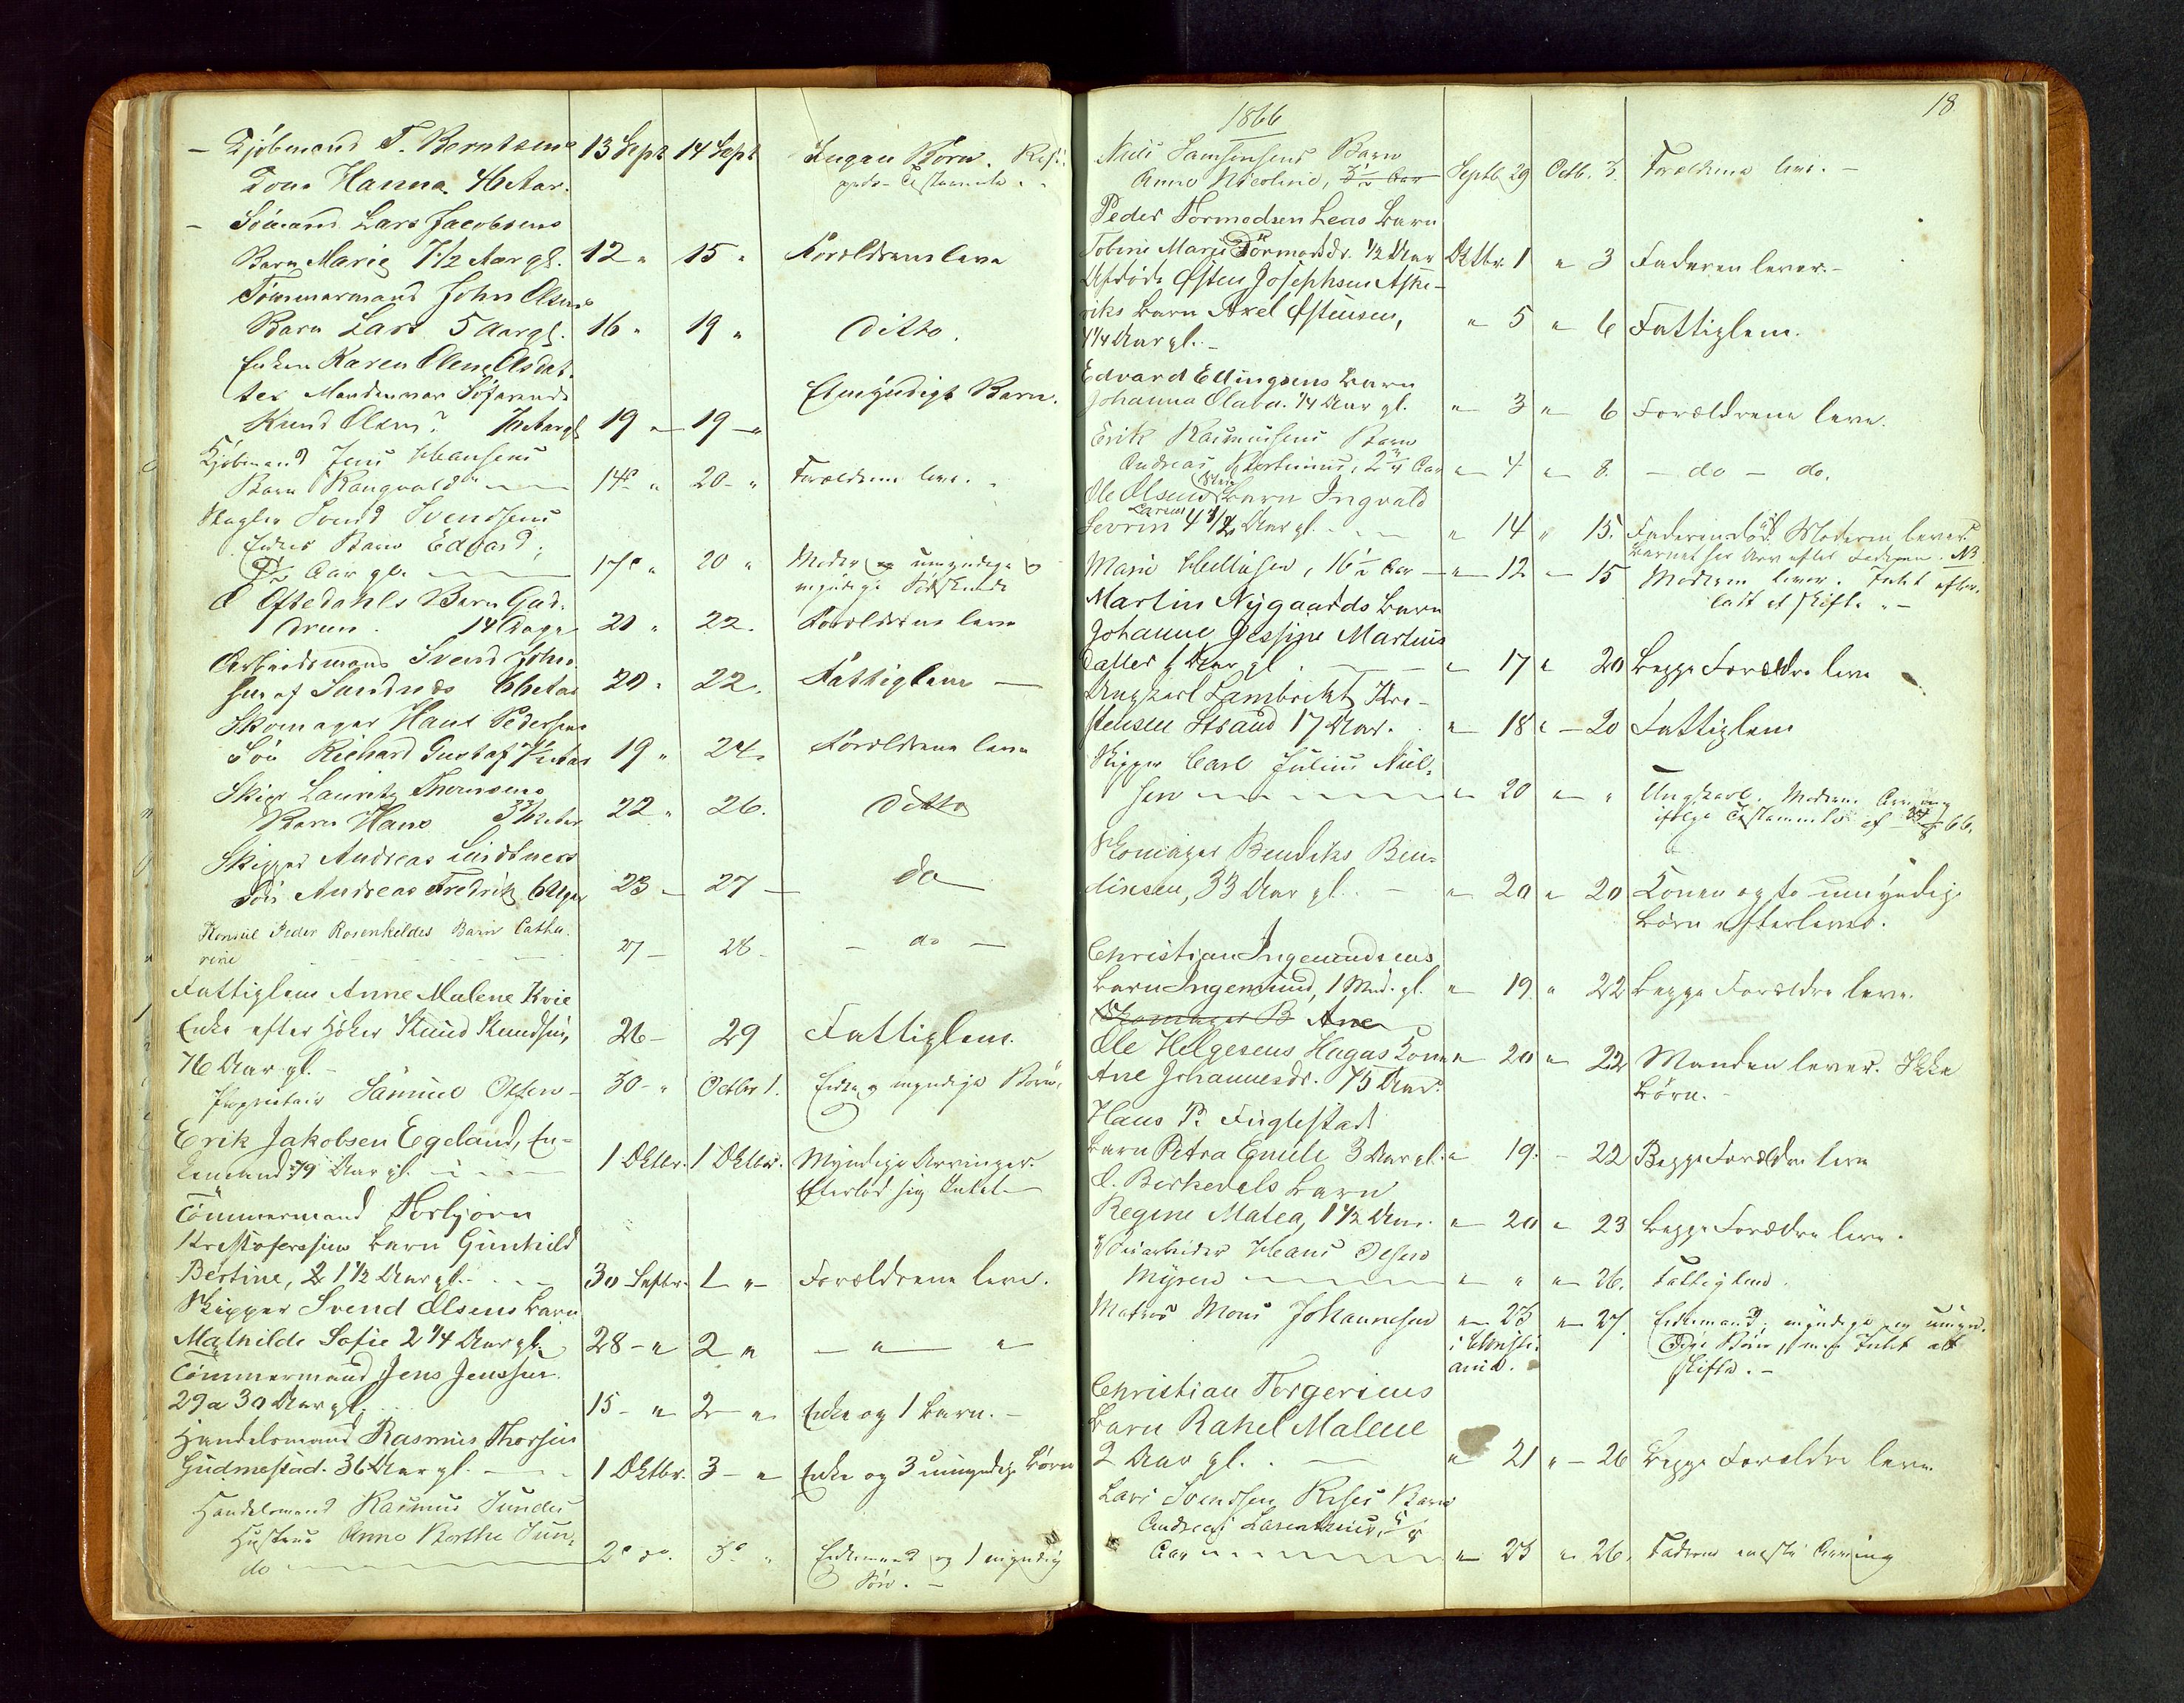 Kjøbmand T. Berntsens 13 Sept 14 Sept Ingen Børn.
Kone Hanna 46 Aar.
Sømand Lars Jacobsens
Barn Marie 7 1/2 Aar gl. 12 " 15 " Forældrene leve
Tømmermand John Olsens
Barn Lars 5 Aar gl. 16 " 19 " Ditto.
Enken Karen Olene Olsdat-
ter Manden var Søfarende Umyndigt Barn.
Knud Olsen? 19 " 19 "
Kjøbmand Jens Hansens
Barn Rangvald 14 " 20 " Forældrene leve.
Svend Svendsens
Enkes Barn Edvard,
Aar gl. 17 " 20 " Moder og umyndige
myndige Sødskende
Oftedahls Barn Gud-
run. 14 Dage 20 " 22. Forældrene leve
Arbeidsmand Svend John-
sen af Sandnes 20 " 22. Fattiglem —
Skomager Hans Pedersens
Søn Richard Gustaf 19 " 24. Forældrene leve
Skipr Lauritz Thomsens
Barn Hans 22 " 26. Ditto
Skipper Andreas Lindtners
Søn Andreas Fredrik 23 — 27 — do
Konsul Peder Rosenkildes Barn Catha-
rine 27 — 28. — do —
Fattiglem Anne Malene Kvie
Enke efter Høker Knud Knudsen, 26 — 29 Fattiglem.
76 Aar gl. —
Proprietair Samuel Olsen — 30 — " Octbr 1. Enke og myndige Børn.
Erik Jakobsen Egeland, En-
kemand 79 Aar gl. 1 Oktbr. 1 Oktbr. Myndige Arvinger.
Efterlod sig Intet
Tømmermand Torbjørn
Kristofersens Barn Gunhild
Bertine, 1 1/2 Aar gl. 30 Septbr. 1 " Forældrene leve.
Skipper Svend Olsens Barn
Mathilde Sofie 2 1/4 Aar gl. 28 — " 2 " — " — "
Tømmermand Jens Jenssen.
29 a 30 Aar gl. 15 — " 2 — " Enke og 1 Barn. —
Handelsmand Rasmus Thorsen
Gudmestad. 36 Aar gl. — 1 Oktbr. 3 — " Enke og 3 umyndige Børn
Handelsmand Rasmus Sundes
Hustru Anne Berthe Sun-
de 2 do. 3 " Enkemand og 1 myndig
Søn. —
1866 18
Niels Samsonsens Barn
Anne Nicoline, Septb 29 Octb. 3. Forældrene leve. —
Peder Tormodsen Leas Barn
Tobine Marie Tormodsdr. 1/2 Aar Oktbr. 1 " 3 Faderen lever. —
Afdøde Østen Josephsen Aske-
viks Barn Axel Østensen, " 5 " 6 Fattiglem.
1 1/4 Aar gl. —
Edvard Ellingsens Barn
Johanna Olava. 1/4 Aar gl. " 3 " 6 Forældrene leve.
Erik Rasmussens Barn
Andreas Martinius, 2 3/4 Aar " 4 " 8. — do — do.
Ole Olsens Barn Ingvald
Larsen
Sevrin 4 1/2 Aar gl. " 14 " 15. Faderen død. Moderen lever.
Barnet har Arv efter Faderen. NB
Marie Helliesen, 16 1/2 Aar — " 12 — 15 Moderen lever. Intet efter-
ladt at skifte. —
Martin Nygaards Barn
Johanne Jessine Martins
datter 1 Aar gl. — " 17 " 20 Begge Forældre leve
Ungkarl Lambrikt Kri-
stensen Strand 17 Aar. " 18 " — 20 Fattiglem
Skipper Carl Julius Niel-
sen " 20 " — " Ungkarl. Moderen Arving
ifølge Testamente af 66.
Skomager Bendiks Ben-
diksen, 33 Aar gl. — " 20 " 20 Konen og to umyndige
Børn efterlever.
Christian Ingemundsens
Barn Ingemund, 1 Mnd. gl. " 19. " 22 Begge Forældre leve.
Skomager B Ane
Ole Helgesens Hagas Kone " 20 " 22 Manden lever. Ikke
Ane Johannesdr. 75 Aar. Børn. —
Hans P. Fuglestads
Barn Petra Emilie 3 Aar gl. " 19. — 22 Begge Forældre leve
C. Berkedals Barn
Regine Matea, 1 1/2 Aar. " 20 " 23 Begge Forældre leve.
Hans Olsen
Myren " " " 26. Fattiglem.
Matros Mons Johannesen " 23 " 27. Enkemand; myndige og umyn-
i Christi- dige Børn, men Intet at
ania. skifte. —
Christian Torgersens
Barn Rakel Malene
2 Aar gl. — " 21 " — 26 Begge Forældre leve
Lars Svendsen Reses Barn
Andreas Laurentius,
Aar " 23 " 26. Faderen eneste Arving